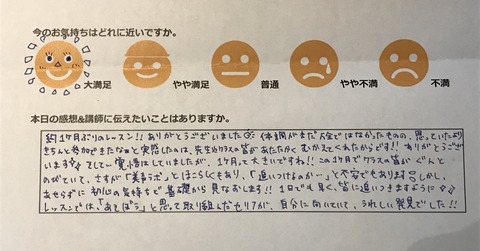 今のお気持ちはどれに近いですか。
大満足 やや満足 普通 やや不満 不満
本日の感想&講師に伝えたいことはありますか。
約1ヶ月ぶりのレッスン!! ありがとうございました 体調がまだ万全ではなかったものの、思っていたより
きちんと参加できたなぁと実感したのは、先生やクラスの皆があたたかくむかえてくれたからです!! ありがとうござい
ます そしてい 覚悟はしていましたが、1ヶ月って大きいですね!! この1ヶ月でクラスの皆がぐんと
のびていて、さすが「美声ラボ」とほこらしくもあり、「追いつけるのか…」と不安でもあります しかし、
あせらずに初心の気持ちで基礎から見なおします!! 1日でも早く、皆に追いつきますように
レッスンでは、「あそぼう」と思って取り組んだセリフが、自分に向いていて、うれしい発見でした!!